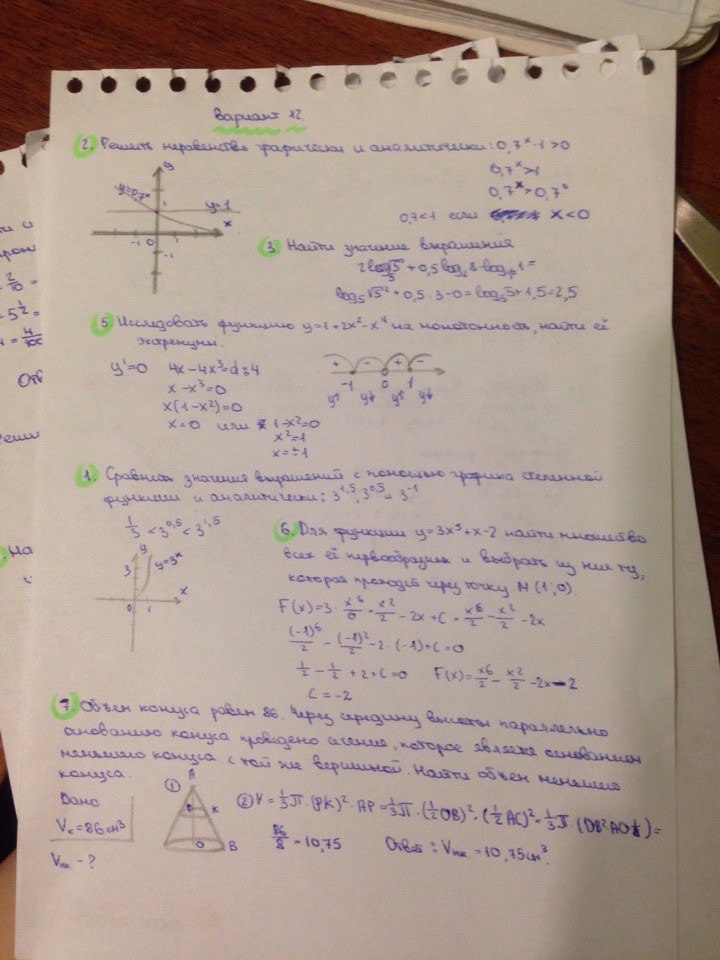 Вариант 12.
2. Решить неравенство графически и аналитически: 0,7^x - 1 > 0
0,7^x > 1
0,7^x > 0,7^0
0,7 < 1 если x < 0
y
y=0,7^x
1
y=1
x
-1 0 1
-1
3. Найти значение выражения
+ 0,5 log_2 8 - log_16 1 =
log_5 √5^2 + 0,5 · 3 - 0 = log_5 5 + 1,5 = 2,5
5 Исследовать функцию y=1+2x^2-x^4 на монотонность, найти её
экстремумы.
y'=0 4x-4x^3=0 |:4
x-x^3=0
x(1-x^2)=0
x=0 или 1-x^2=0
x^2=1
x=±1
+ - + -
-1 0 1
y↑ y↓ y↑ y↓
1. Сравнить значения выражений с помощью графика степенной
функции и аналитически: 3^1,5, 3^0,5 и 3^-1
1/3 < 3^0,5 < 3^1,5
y
3
y=3^x
x
0 1
6. Для функции y=3x^5+x-2 найти множество
всех её первообразных и выбрать из них ту,
которая проходит через точку M (1; 0).
F(x)=3 · x^6/6 + x^2/2 - 2x + C = x^6/2 - x^2/2 - 2x
(-1)^6/2 - (-1)^2/2 - 2 · (-1) + C = 0
1/2 - 1/2 + 2 + C = 0 F(x) = x^6/2 - x^2/2 - 2x - 2
C = -2
7. Объем конуса равен 86. Через середину высоты параллельно
основанию конуса проведено сечение, которое является основанием
меньшего конуса с той же вершиной. Найти объем меньшего
конуса.
Дано
V_c = 86 см^3
V_ - ?
① A
P K
O B
② V = 1/3 π · (PK)^2 · AP = 1/3 π · (1/2 OB)^2 · (1/2 AC)^2 = 1/3 π (OB^2 AO ) =
86/8 = 10,75 Ответ: V = 10,75 см^3.